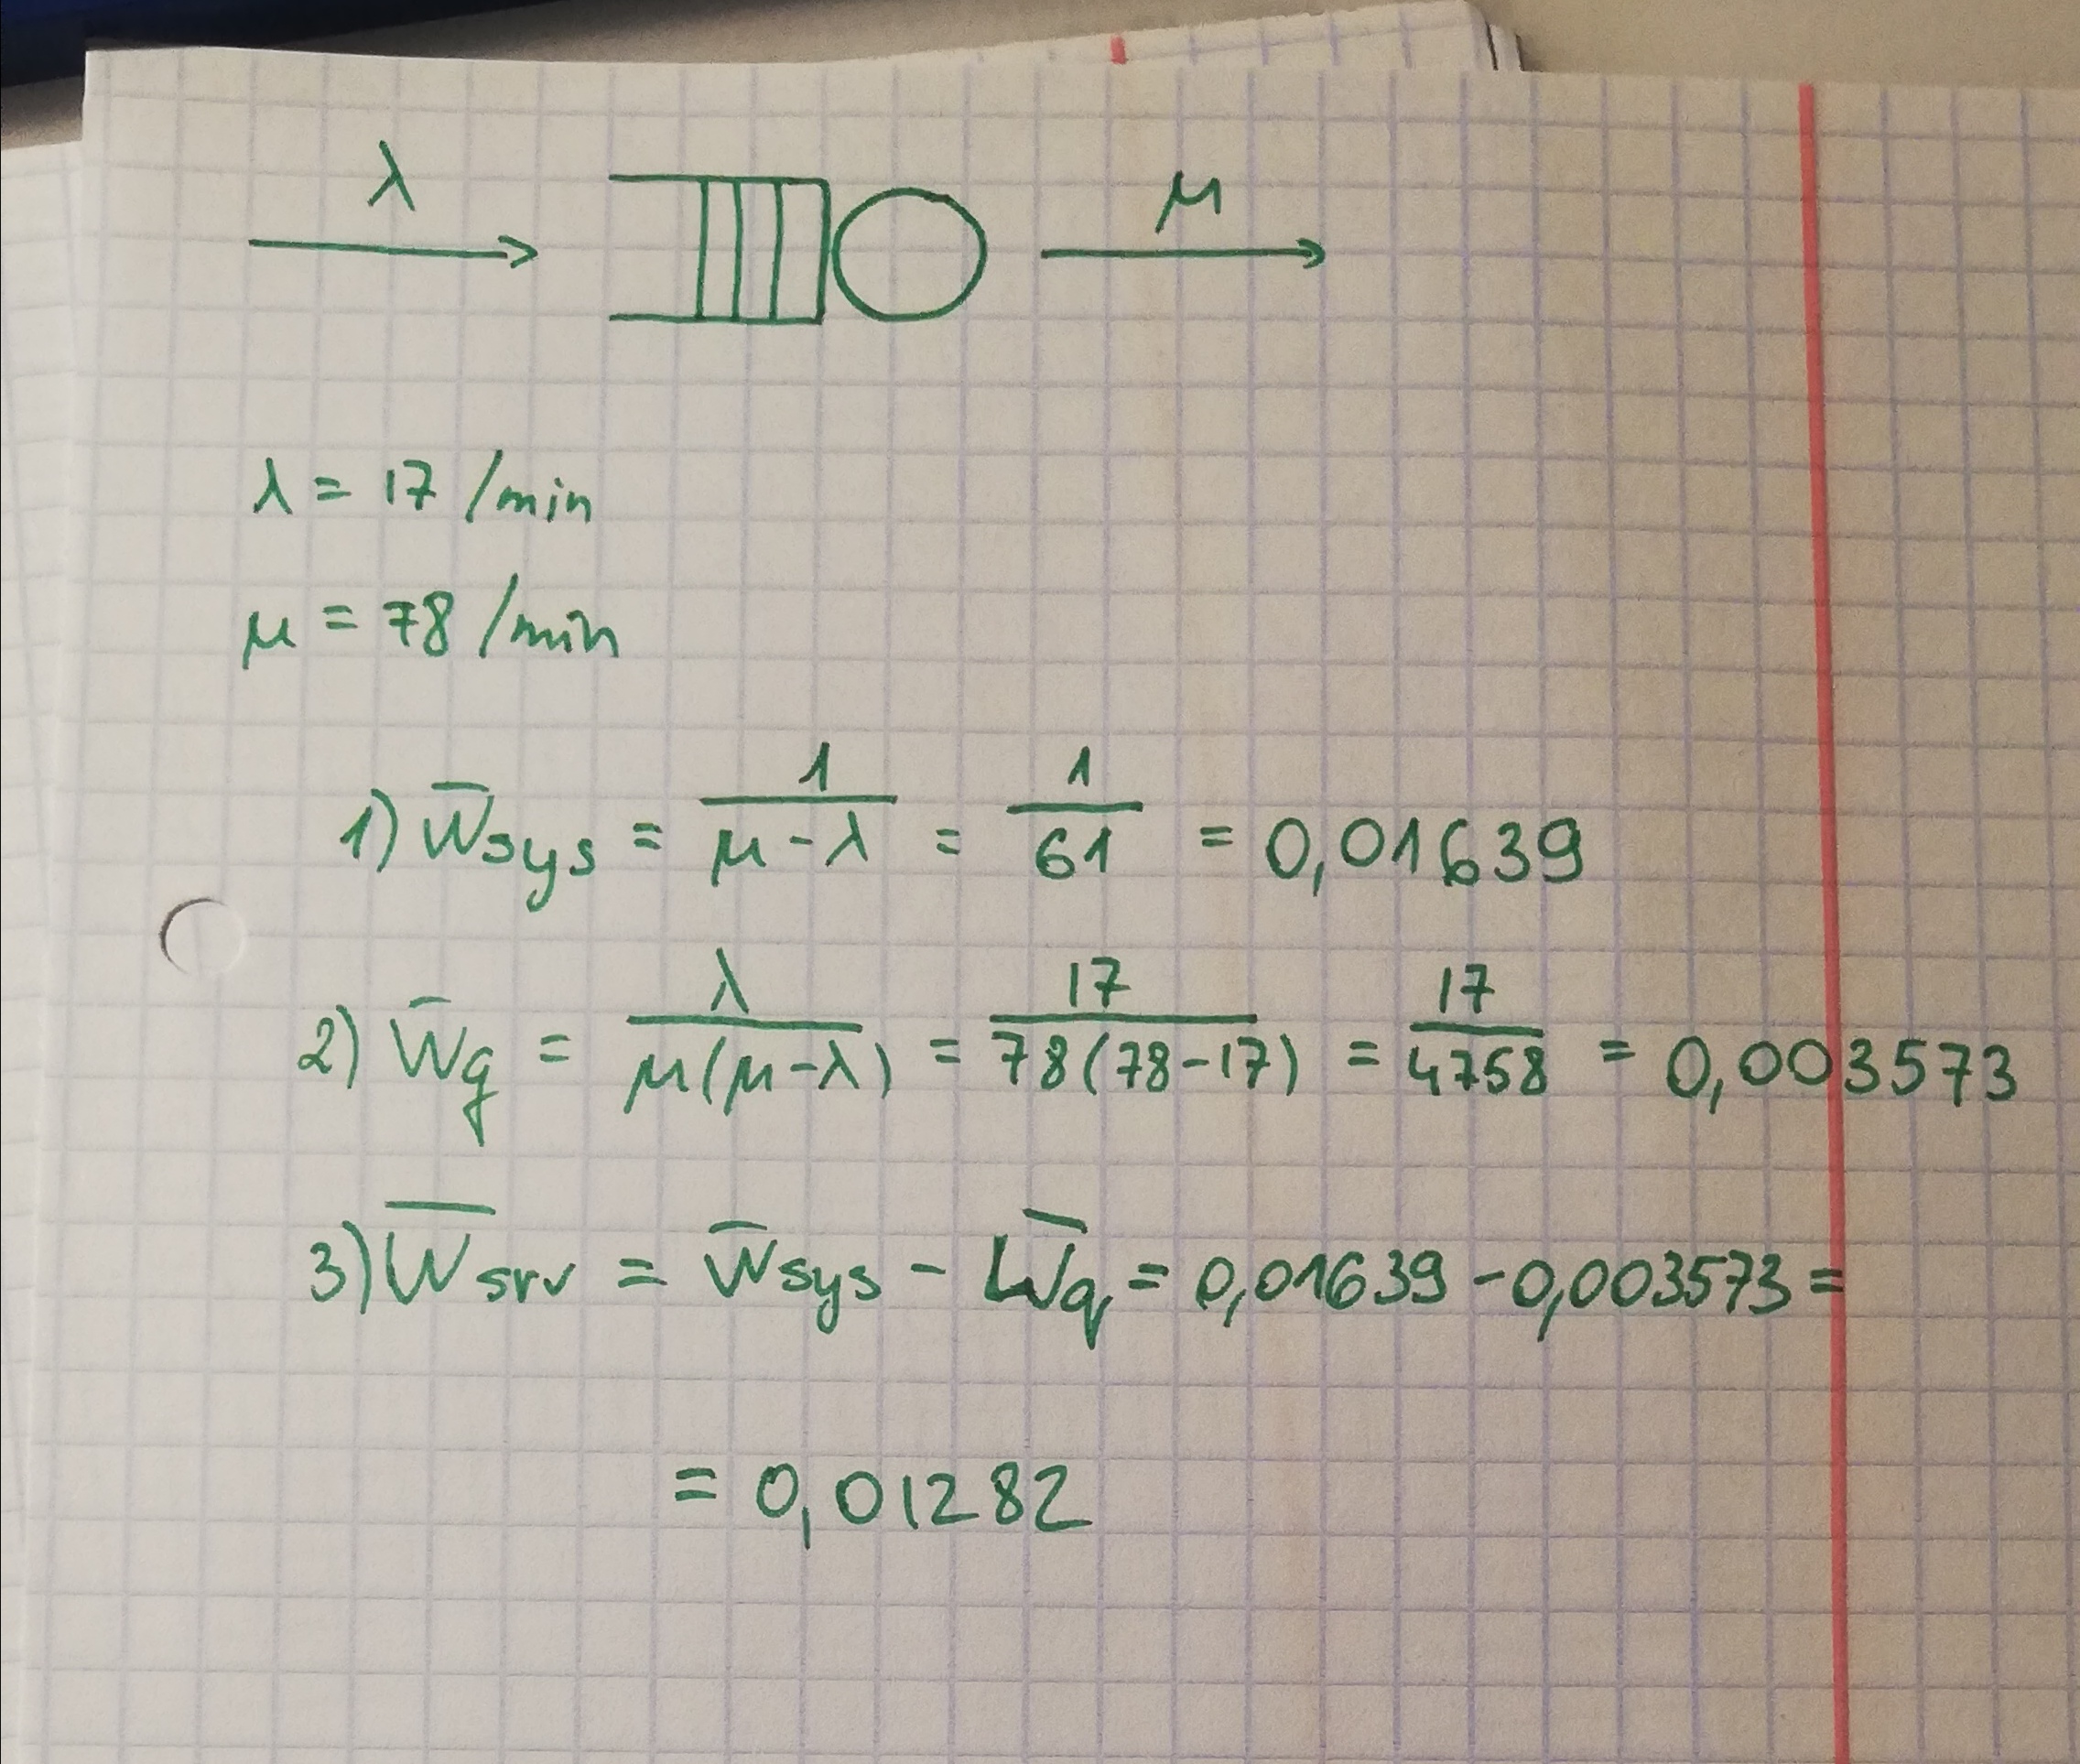 λ μ
λ = 17 /min
μ = 78 /min
1) W̅sys = 1/(μ - λ) = 1/61 = 0,01639
2) W̅q = λ/(μ(μ-λ)) = 17/(78(78-17)) = 17/4758 = 0,003573
3) W̅srv = W̅sys - W̅q = 0,01639 - 0,003573 =
= 0,01282